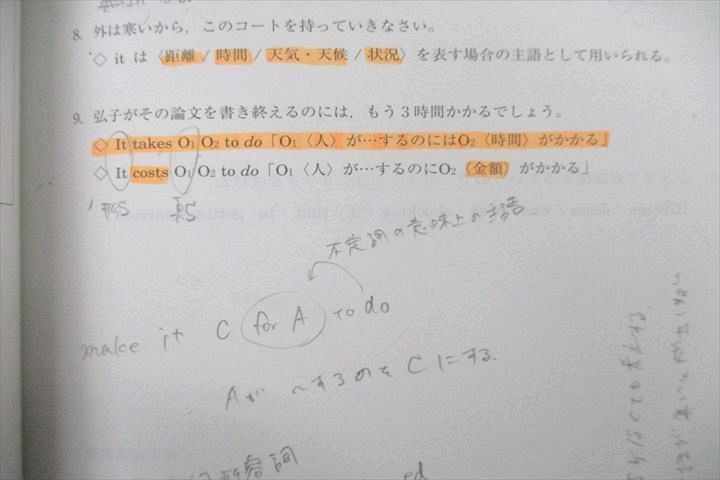 8. 外は寒いから，このコートを持っていきなさい。
◇ it は〈距離 / 時間 / 天気・天候 / 状況〉を表す場合の主語として用いられる。
9. 弘子がその論文を書き終えるのには，もう３時間かかるでしょう。
◇ It takes O₁ O₂ to do「O₁〈人〉が…するのにはO₂〈時間〉がかかる」
◇ It costs O₁ O₂ to do「O₁〈人〉が…するのにO₂〈金額〉がかかる」
形S 真S
不定詞の意味上の主語
make it C for A to do
Aが〜するのをCにする
形容詞
ed